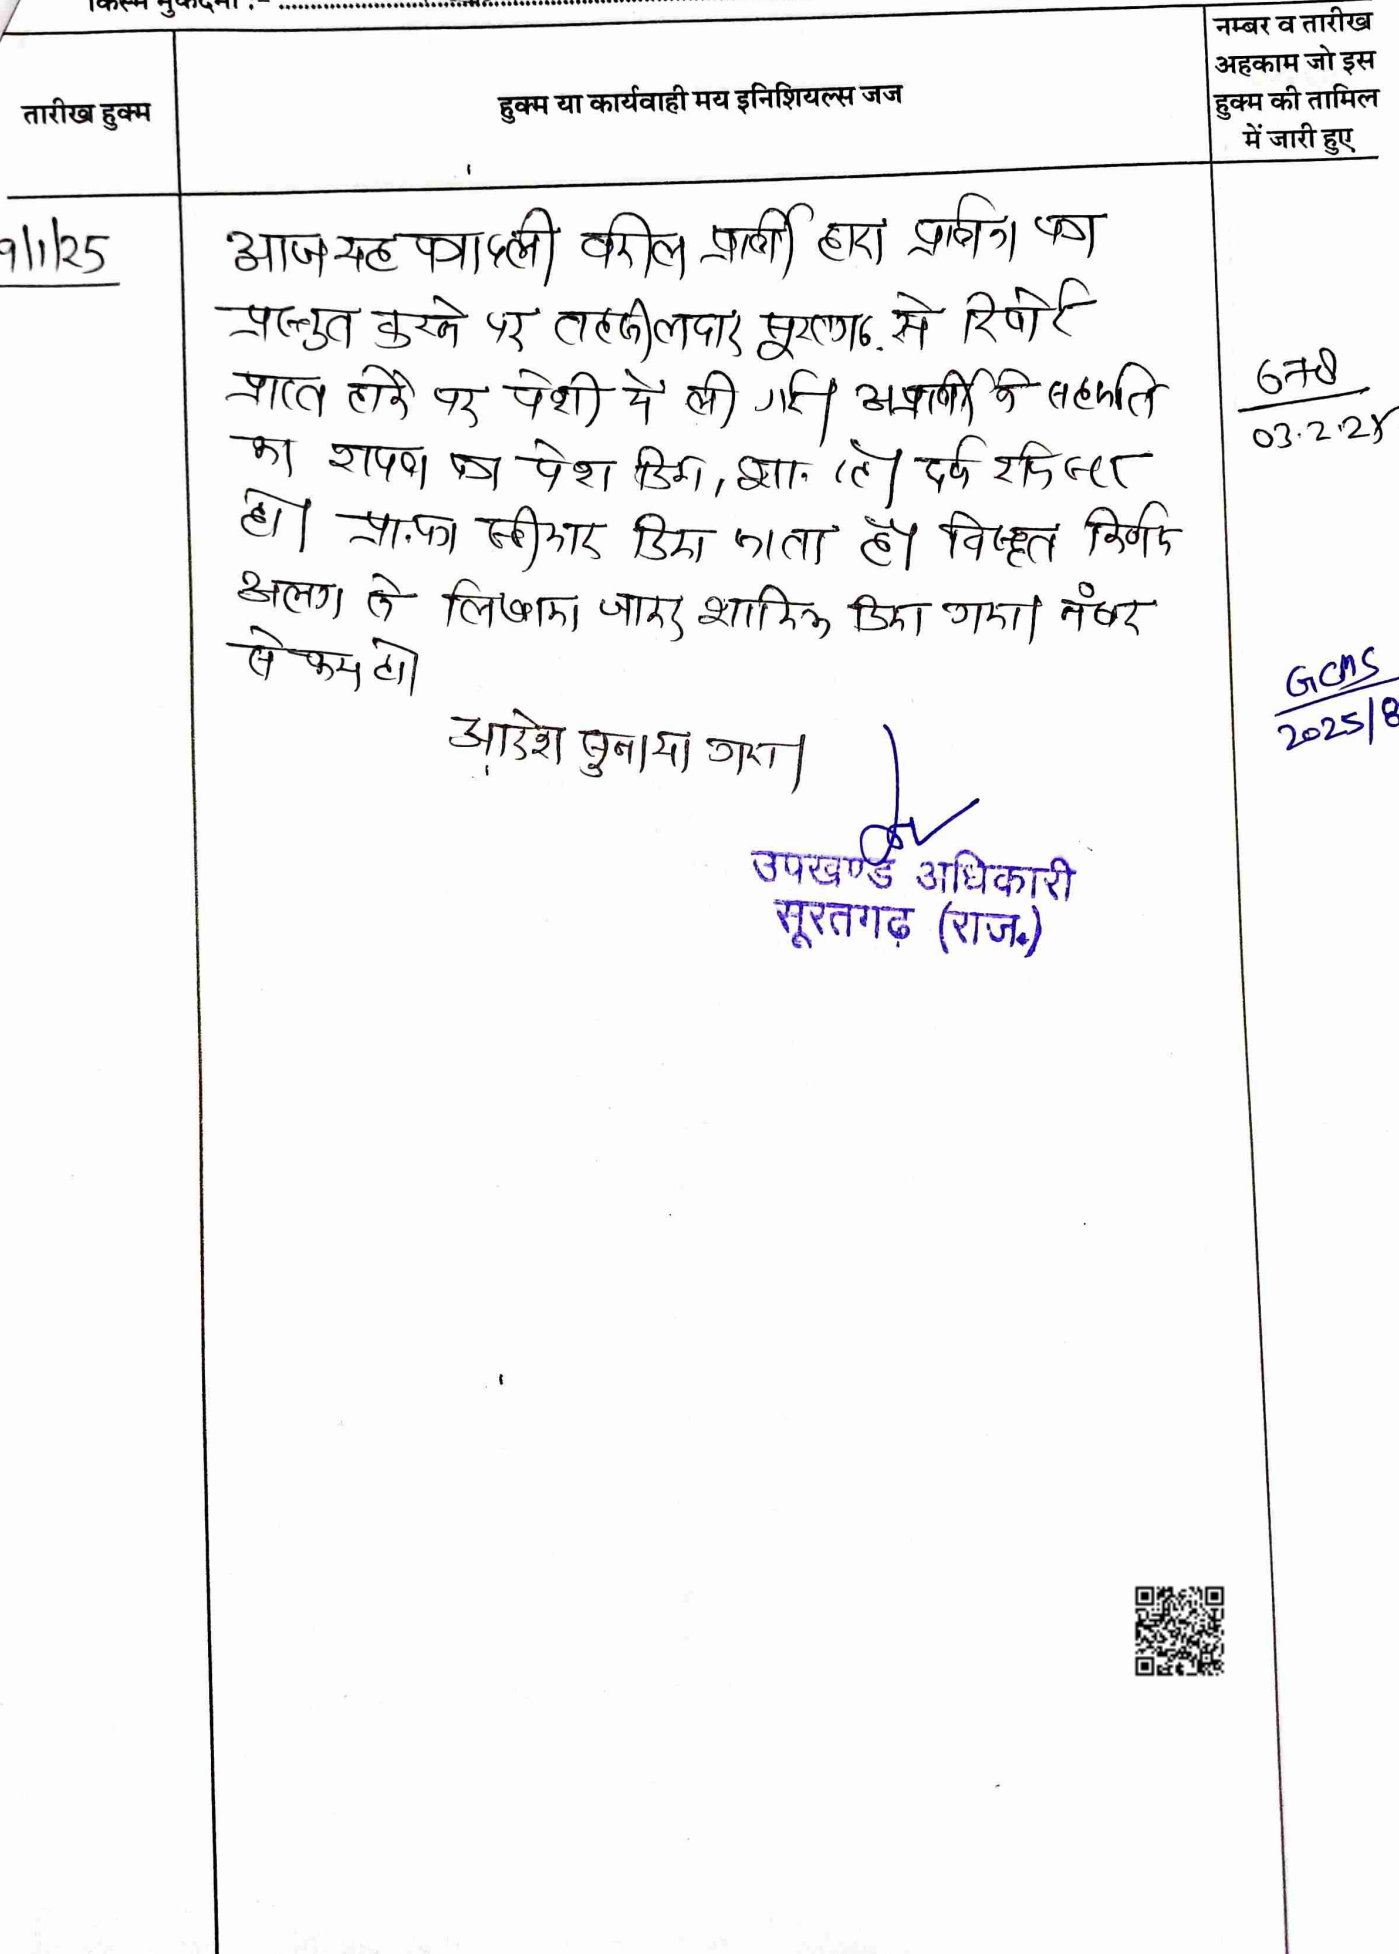 किस्म मुकदमा :-
तारीख हुक्म
हुक्म या कार्यवाही मय इनिशियल्स जज
नम्बर व तारीख
अहकाम जो इस
हुक्म की तामिल
में जारी हुए
9/1/25
आज यह पत्रावली वकील प्रार्थी द्वारा प्रार्थना पत्र
प्रस्तुत करने पर तहसीलदार सूरतगढ़ से रिपोर्ट
प्राप्त होने पर पेशी में ली गई। अप्रार्थी ने सहमति
का शपथ पत्र पेश किया, शा. है। दर्ज रजिस्टर
हो। प्रा.पत्र स्वीकार किया जाता है। विस्तृत निर्णय
अलग से लिखाया जाकर शामिल किया गया। नंबर
से कम हो।
आदेश सुनाया गया।
678
03.2.25
GCMS
2025/8
उपखण्ड अधिकारी
सूरतगढ़ (राज.)